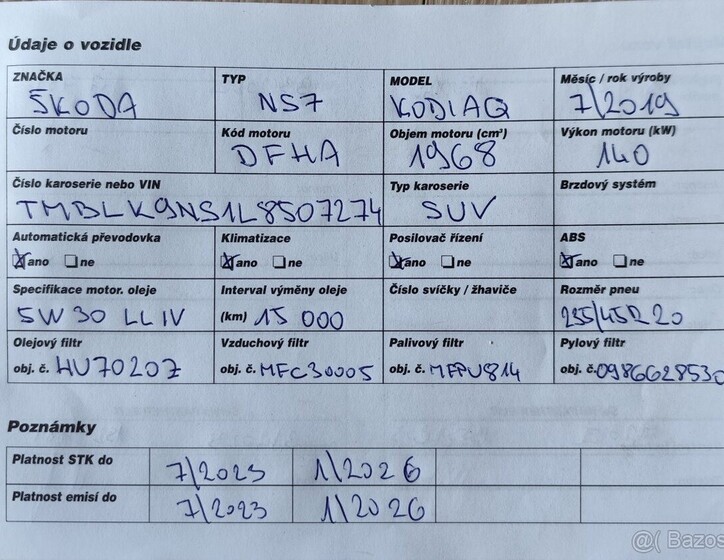 Údaje o vozidle
ZNAČKA TYP MODEL Měsíc / rok výroby
ŠKODA NS7 KODIAQ 7/2019
Číslo motoru Kód motoru Objem motoru (cm³) Výkon motoru (kW)
DFHA 1968 140
Číslo karoserie nebo VIN Typ karoserie Brzdový systém
TMBLK9NS1L8507274 SUV
Automatická převodovka Klimatizace Posilovač řízení ABS
ano ne ano ne ano ne ano ne
Specifikace motor. oleje Interval výměny oleje Číslo svíčky / žhaviče Rozměr pneu
5W30 LL IV (km) 15 000 235/45R20
Olejový filtr Vzduchový filtr Palivový filtr Pylový filtr
obj. č. HU7020Z obj. č. MFC30005 obj. č. MFPU814 obj. č. 0986628530
Poznámky
Platnost STK do 7/2023 1/2026
Platnost emisí do 7/2023 1/2026
@( Bazos